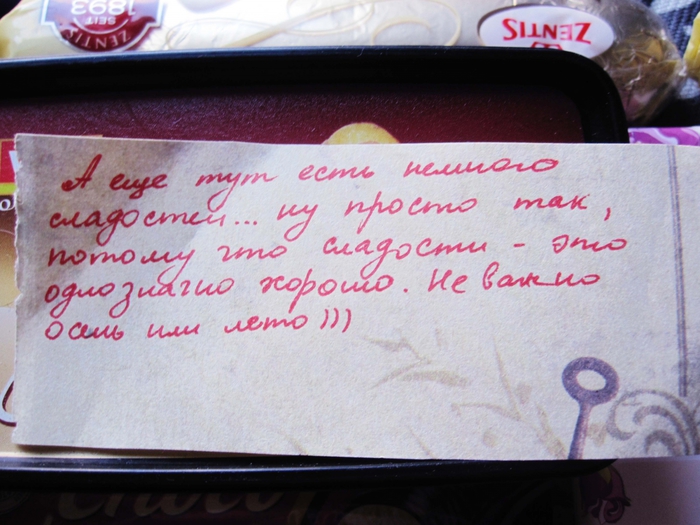 1893
SEIT
ZENTIS
ZENTIS
А еще тут есть немного
сладостей... ну просто так,
потому что сладости - это
однозначно хорошо. Не важно
осень или лето)))